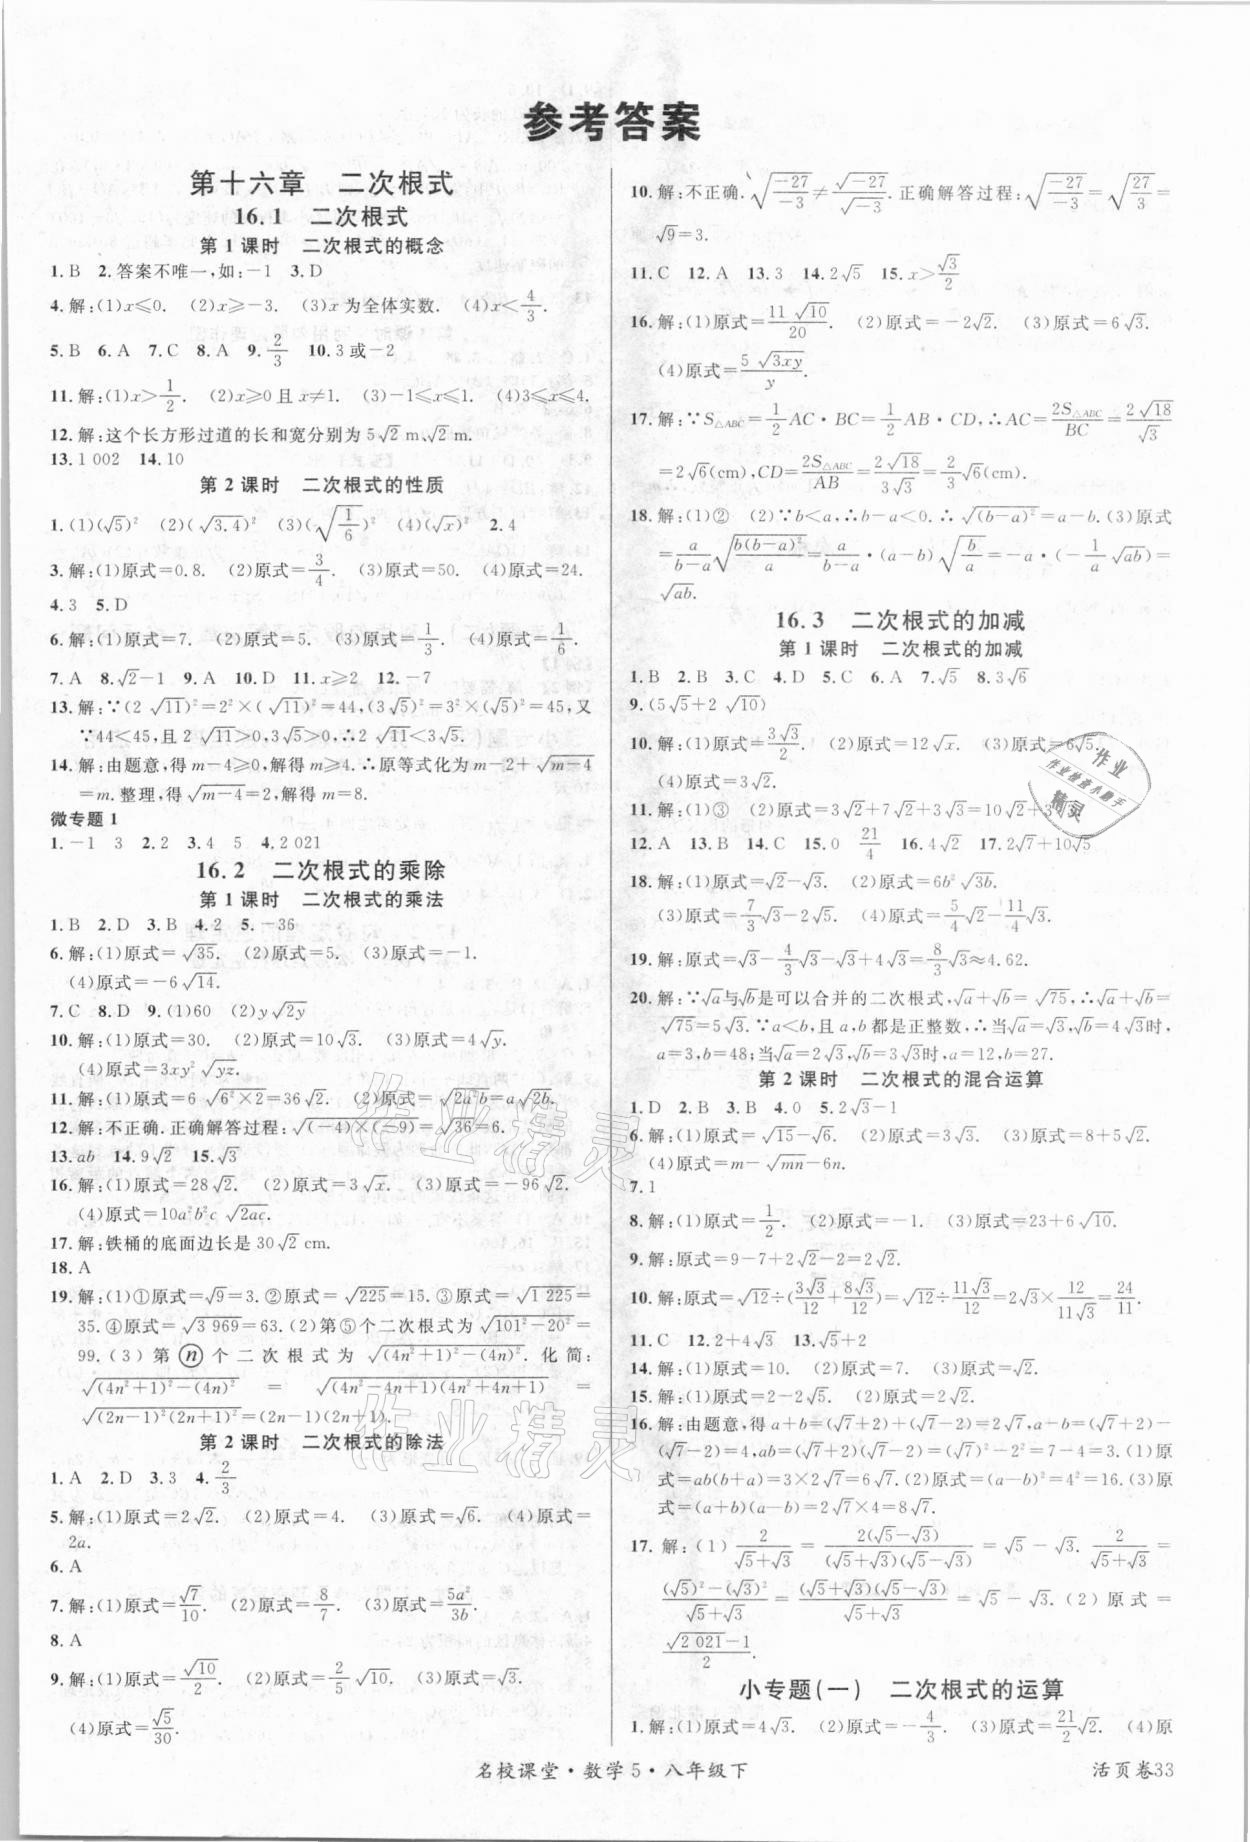 参考答案
第十六章 二次根式
16.1 二次根式
第1课时 二次根式的概念
1.B 2.答案不唯一,如:-1 3.D
4.解:(1)x≤0. (2)x≥-3. (3)x为全体实数. (4)x<4/3.
5.B 6.A 7.C 8.A 9.2/3 10.3或-2
11.解:(1)x>1/2. (2)x≥0且x≠1. (3)-1≤x≤1. (4)3≤x≤4.
12.解:这个长方形过道的长和宽分别为5√2 m、√2 m.
13.1 002 14.10
第2课时 二次根式的性质
1.(1)(√5)² (2)(√3.4)² (3)(√(1/6))² (4)(√x)² 2.4
3.解:(1)原式=0.8. (2)原式=3/4. (3)原式=50. (4)原式=24.
4.3 5.D
6.解:(1)原式=7. (2)原式=5. (3)原式=1/3. (4)原式=1/6.
7.A 8.√2-1 9.A 10.D 11.x≥2 12.-7
13.解:∵(2√11)²=2²×(√11)²=44,(3√5)²=3²×(√5)²=45,又
∵44<45,且2√11>0,3√5>0,∴2√11<3√5.
14.解:由题意,得m-4≥0,解得m≥4.∴原等式化为m-2+√(m-4)
=m.整理,得√(m-4)=2,解得m=8.
微专题1
1.-1 3 2.2 3.4 5 4.2 021
16.2 二次根式的乘除
第1课时 二次根式的乘法
1.B 2.D 3.B 4.2 5.-36
6.解:(1)原式=√35. (2)原式=5. (3)原式=1.
(4)原式=-6√14.
7.C 8.D 9.(1)60 (2)y√(2y)
10.解:(1)原式=30. (2)原式=10√3. (3)原式=4√y.
(4)原式=3xy²√(yz).
11.解:(1)原式=6√(6²×2)=36√2. (2)原式=√(2a²b)=a√(2b).
12.解:不正确.正确解答过程:√((-4)×(-9))=√36=6.
13.ab 14.9√2 15.√3
16.解:(1)原式=28√2. (2)原式=3√2. (3)原式=-96√2.
(4)原式=10a²b²c√(2ac).
17.解:铁桶的底面边长是30√2 cm.
18.A
19.解:(1)①原式=√9=3.②原式=√225=15.③原式=√1 225=
35.④原式=√3 969=63.(2)第⑤个二次根式为√(101²-20²)=
99.(3)第ⓝ个二次根式为√((4n²+1)²-(4n)²).化简:
√((4n²+1)²-(4n)²) = √((4n²-4n+1)(4n²+4n+1)) =
√((2n-1)²(2n+1)²)=(2n-1)(2n+1).
第2课时 二次根式的除法
1.A 2.D 3.3 4.2/3
5.解:(1)原式=2√2. (2)原式=4. (3)原式=√6. (4)原式=
2a.
6.A
7.解:(1)原式=√7/10. (2)原式=8/7. (3)原式=5a²/3b.
8.A
9.解:(1)原式=√10/2. (2)原式=2/5√10. (3)原式=√3.
(4)原式=√5/30.
10.解:不正确.√(-27/-3)≠√-27/√-3.正确解答过程:√(-27/-3)=√(27/3)=
√9=3.
11.C 12.A 13.3 14.2√5 15.x>√3/2
16.解:(1)原式=11√10/20. (2)原式=-2√2. (3)原式=6√3.
(4)原式=5√(3xy)/y.
17.解:∵S△ABC=1/2AC·BC=1/2AB·CD,∴AC=2S△ABC/BC=2√18/√3
=2√6(cm),CD=2S△ABC/AB=2√18/3√3=2/3√6(cm).
18.解:(1)② (2)∵b<a,∴b-a<0.∴√((b-a)²)=a-b.(3)原式
=a/(b-a)√(b(b-a)²/a)=a/(b-a)·(a-b)√(b/a)=-a·(-1/a√(ab))=
√(ab).
16.3 二次根式的加减
第1课时 二次根式的加减
1.B 2.B 3.C 4.D 5.C 6.A 7.√5 8.3√6
9.(5√5+2√10)
10.解:(1)原式=3√3/2. (2)原式=12√x. (3)原式=6√5.
(4)原式=3√2.
11.解:(1)③ (2)原式=3√2+7√2+3√3=10√2+3√3.
12.A 13.B 14.C 15.0 21/4 16.4√2 17.2√10+10√5
18.解:(1)原式=√2-√3. (2)原式=6b²√(3b).
(3)原式=7/3√3-2√5. (4)原式=5/4√2-11/4√3.
19.解:原式=√3-4/3√3-√3+4√3=8/3√3≈4.62.
20.解:∵√a与√b是可以合并的二次根式,√a+√b=√75,∴√a+√b=
√75=5√3.∵a<b,且a,b都是正整数,∴当√a=√3,√b=4√3时,
a=3,b=48;当√a=2√3,√b=3√3时,a=12,b=27.
第2课时 二次根式的混合运算
1.D 2.B 3.B 4.0 5.2√3-1
6.解:(1)原式=√15-√6. (2)原式=3√3. (3)原式=8+5√2.
(4)原式=m-√(mn)-6n.
7.1
8.解:(1)原式=1/2. (2)原式=-1. (3)原式=23+6√10.
9.解:原式=9-7+2√2-2=2√2.
10.解:原式=√12÷(3√3/12+8√3/12)=√12÷11√3/12=2√3×12/11√3=24/11.
11.C 12.2+4√3 13.√5+2
14.解:(1)原式=10. (2)原式=7. (3)原式=√2.
15.解:(1)原式=2-2√5. (2)原式=2√2.
16.解:由题意,得a+b=(√7+2)+(√7-2)=2√7,a-b=(√7+2)-
(√7-2)=4,ab=(√7+2)(√7-2)=(√7)²-2²=7-4=3.(1)原
式=ab(b+a)=3×2√7=6√7.(2)原式=(a-b)²=4²=16.(3)原
式=(a+b)(a-b)=2√7×4=8√7.
17.解:(1)2/(√5+√3)=2(√5-√3)/((√5+√3)(√5-√3))=√5-√3. 2/(√5+√3)=
((√5)²-(√3)²)/(√5+√3)=(√5+√3)(√5-√3)/(√5+√3)=√5-√3.(2)原式=
(√2 021-1)/2.
小专题(一) 二次根式的运算
1.解:(1)原式=4√3. (2)原式=-4/3. (3)原式=21/2√2. (4)原
名校课堂·数学5·八年级下
活页卷33
作业
作业检查小助手
精灵
作业精灵
作业精灵